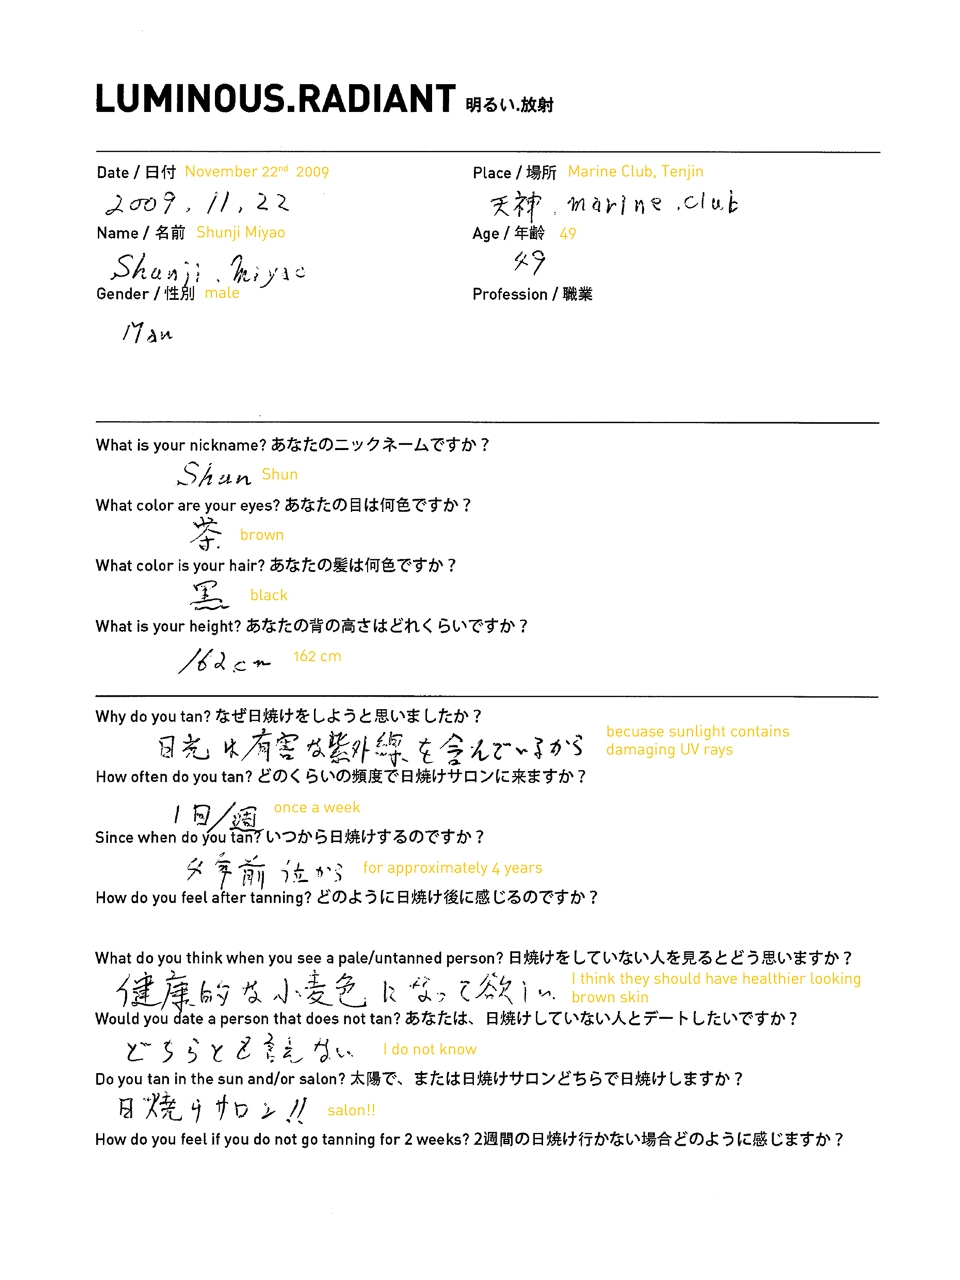 LUMINOUS.RADIANT 明るい.放射
Date / 日付 November 22nd 2009
Place / 場所 Marine Club, Tenjin
2009.11.22
天神.marine.club
Name / 名前 Shunji Miyao
Age / 年齢 49
Shunji.Miyao
49
Gender / 性別 male
Profession / 職業
Man
What is your nickname? あなたのニックネームですか？
Shun Shun
What color are your eyes? あなたの目は何色ですか？
茶. brown
What color is your hair? あなたの髪は何色ですか？
黒 black
What is your height? あなたの背の高さはどれくらいですか？
162cm 162 cm
Why do you tan? なぜ日焼けをしようと思いましたか？
日光は有害な紫外線を含んでいるから
becuase sunlight contains
damaging UV rays
How often do you tan? どのくらいの頻度で日焼けサロンに来ますか？
1回/週 once a week
Since when do you tan? いつから日焼けするのですか？
4年前位から for approximately 4 years
How do you feel after tanning? どのように日焼け後に感じるのですか？
What do you think when you see a pale/untanned person? 日焼けをしていない人を見るとどう思いますか？
健康的な小麦色になって欲しい
I think they should have healthier looking
brown skin
Would you date a person that does not tan? あなたは、日焼けしていない人とデートしたいですか？
どちらとも言えない I do not know
Do you tan in the sun and/or salon? 太陽で、または日焼けサロンどちらで日焼けしますか？
日焼けサロン!! salon!!
How do you feel if you do not go tanning for 2 weeks? 2週間の日焼け行かない場合どのように感じますか？